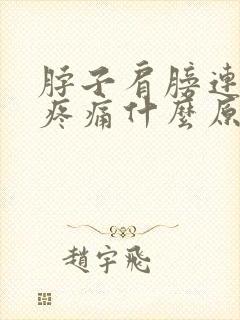 脖子肩膀連
疼痛什麼原
趙宇飛